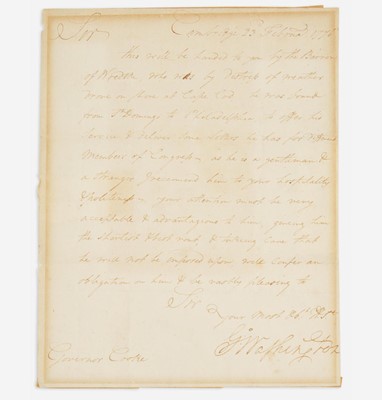 Sir
Cambridge 23 Feb. 1776
This will be handed to you by the Baron
of Woedtke who was by distress of weather
drove on shore at Cape Cod. he was bound
from St Domingo to Philadelphia to offer his
Service & deliver some letters he has for different
Members of Congress – as he is a gentleman &
a stranger I recommend him to your hospitality
& your attention must be very
acceptable & advantageous to him, giving him
the shortest & best rout, & taking care that
he will not be imposed upon will confer an
obligation on him & be pleasing to
Sir
Your most Obt. St.
Go Washington
Governor Cooke